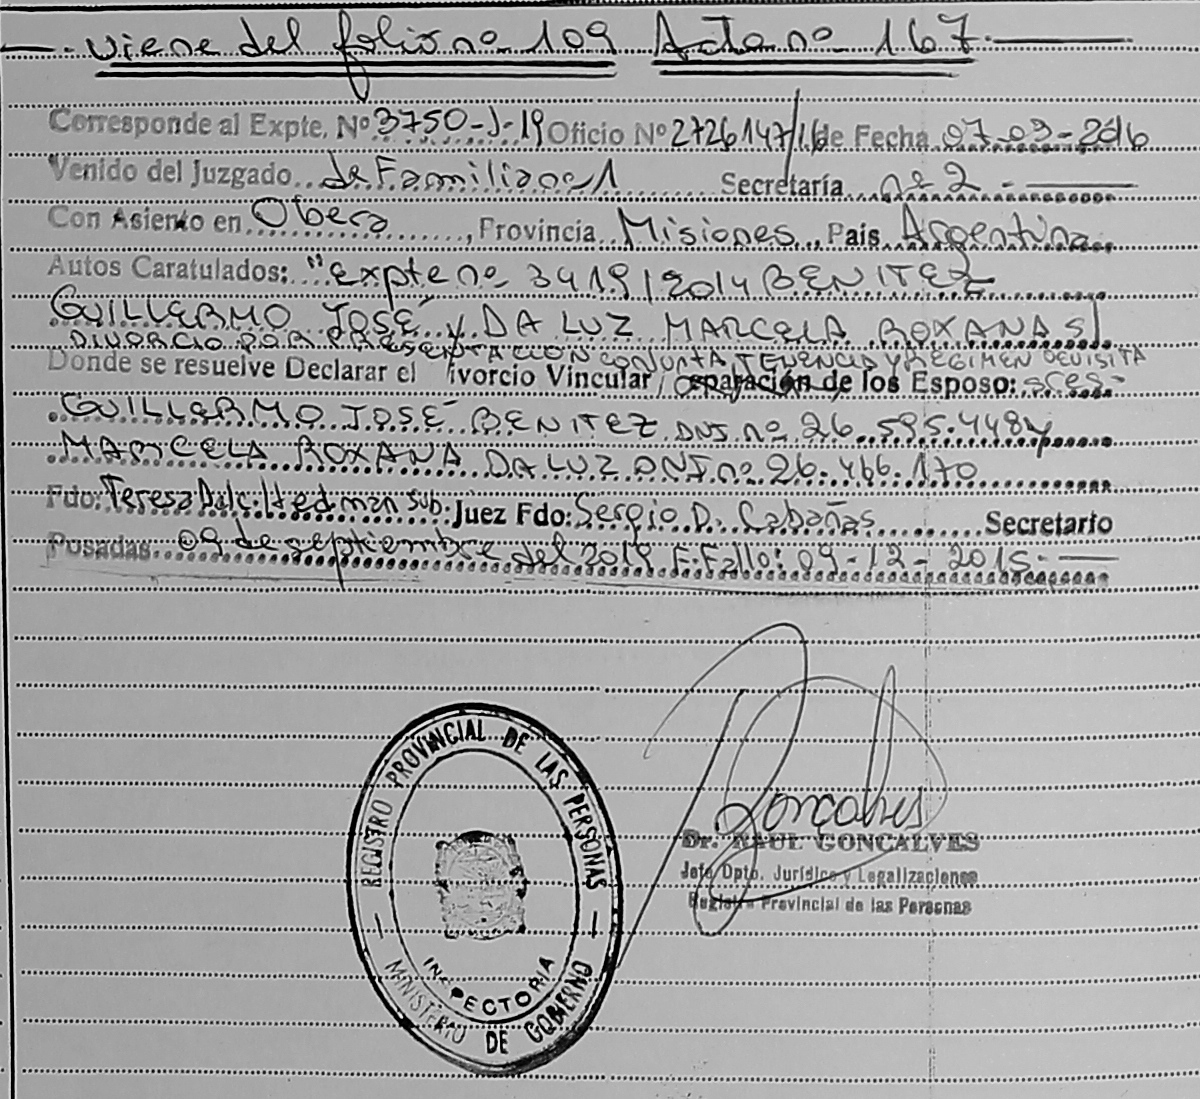 —. viene del folio nº 109 Acta nº 167.—
Corresponde al Expte. Nº 3750-J-19 Oficio Nº 2726147/16 de Fecha 07-03-2016
Venido del Juzgado de Familia nº 1 Secretaría nº 2.—
Con Asiento en Obera, Provincia Misiones, Pais Argentina
Autos Caratulados: "Expte nº 3419/2014 BENITEZ
GUILLERMO JOSÉ y DA LUZ MARCELA ROXANA S/
DIVORCIO POR PRESENTACION CONJUNTA TENENCIA Y REGIMEN DE VISITA
Donde se resuelve Declarar el ivorcio Vincular / eparación de los Esposo: sres.
GUILLERMO JOSÉ BENITEZ DNI nº 26.595.448 y
MARCELA ROXANA DA LUZ DNI nº 26.466.170
Fdo: Teresa Hedman sub. Juez Fdo: Sergio D. Cabañas Secretario
Posadas 09 de septiembre del 2019 F. Fallo: 09-12-2015.—
REGISTRO PROVINCIAL DE LAS PERSONAS
INSPECTORIA
MINISTERIO DE GOBIERNO
Goncalves
Dr. RAUL GONCALVES
Jefe Dpto. Jurídico y Legalizaciones
Registro Provincial de las Personas